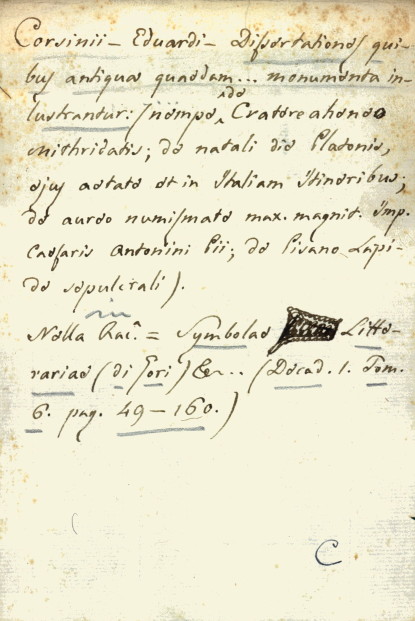 Corsinii - Eduardi - Dissertationes qui-
bus antiquae quaedam... monumenta in-
lustrantur: (nempe de Cratere aheneo
Mithridatis; de natali die Platonis,
ejus aetate et in Italiam Itineribus;
de aureo numismate max. magnit. Imp.
Caesaris Antonini Pii; de Pisano Lapi-
de sepulcrali).
in
Nella Rac.ª = Symbolae Litte-
rariae (di Gori) &c... (Decad. 1. Tom.
6. pag. 49 - 160.)
C